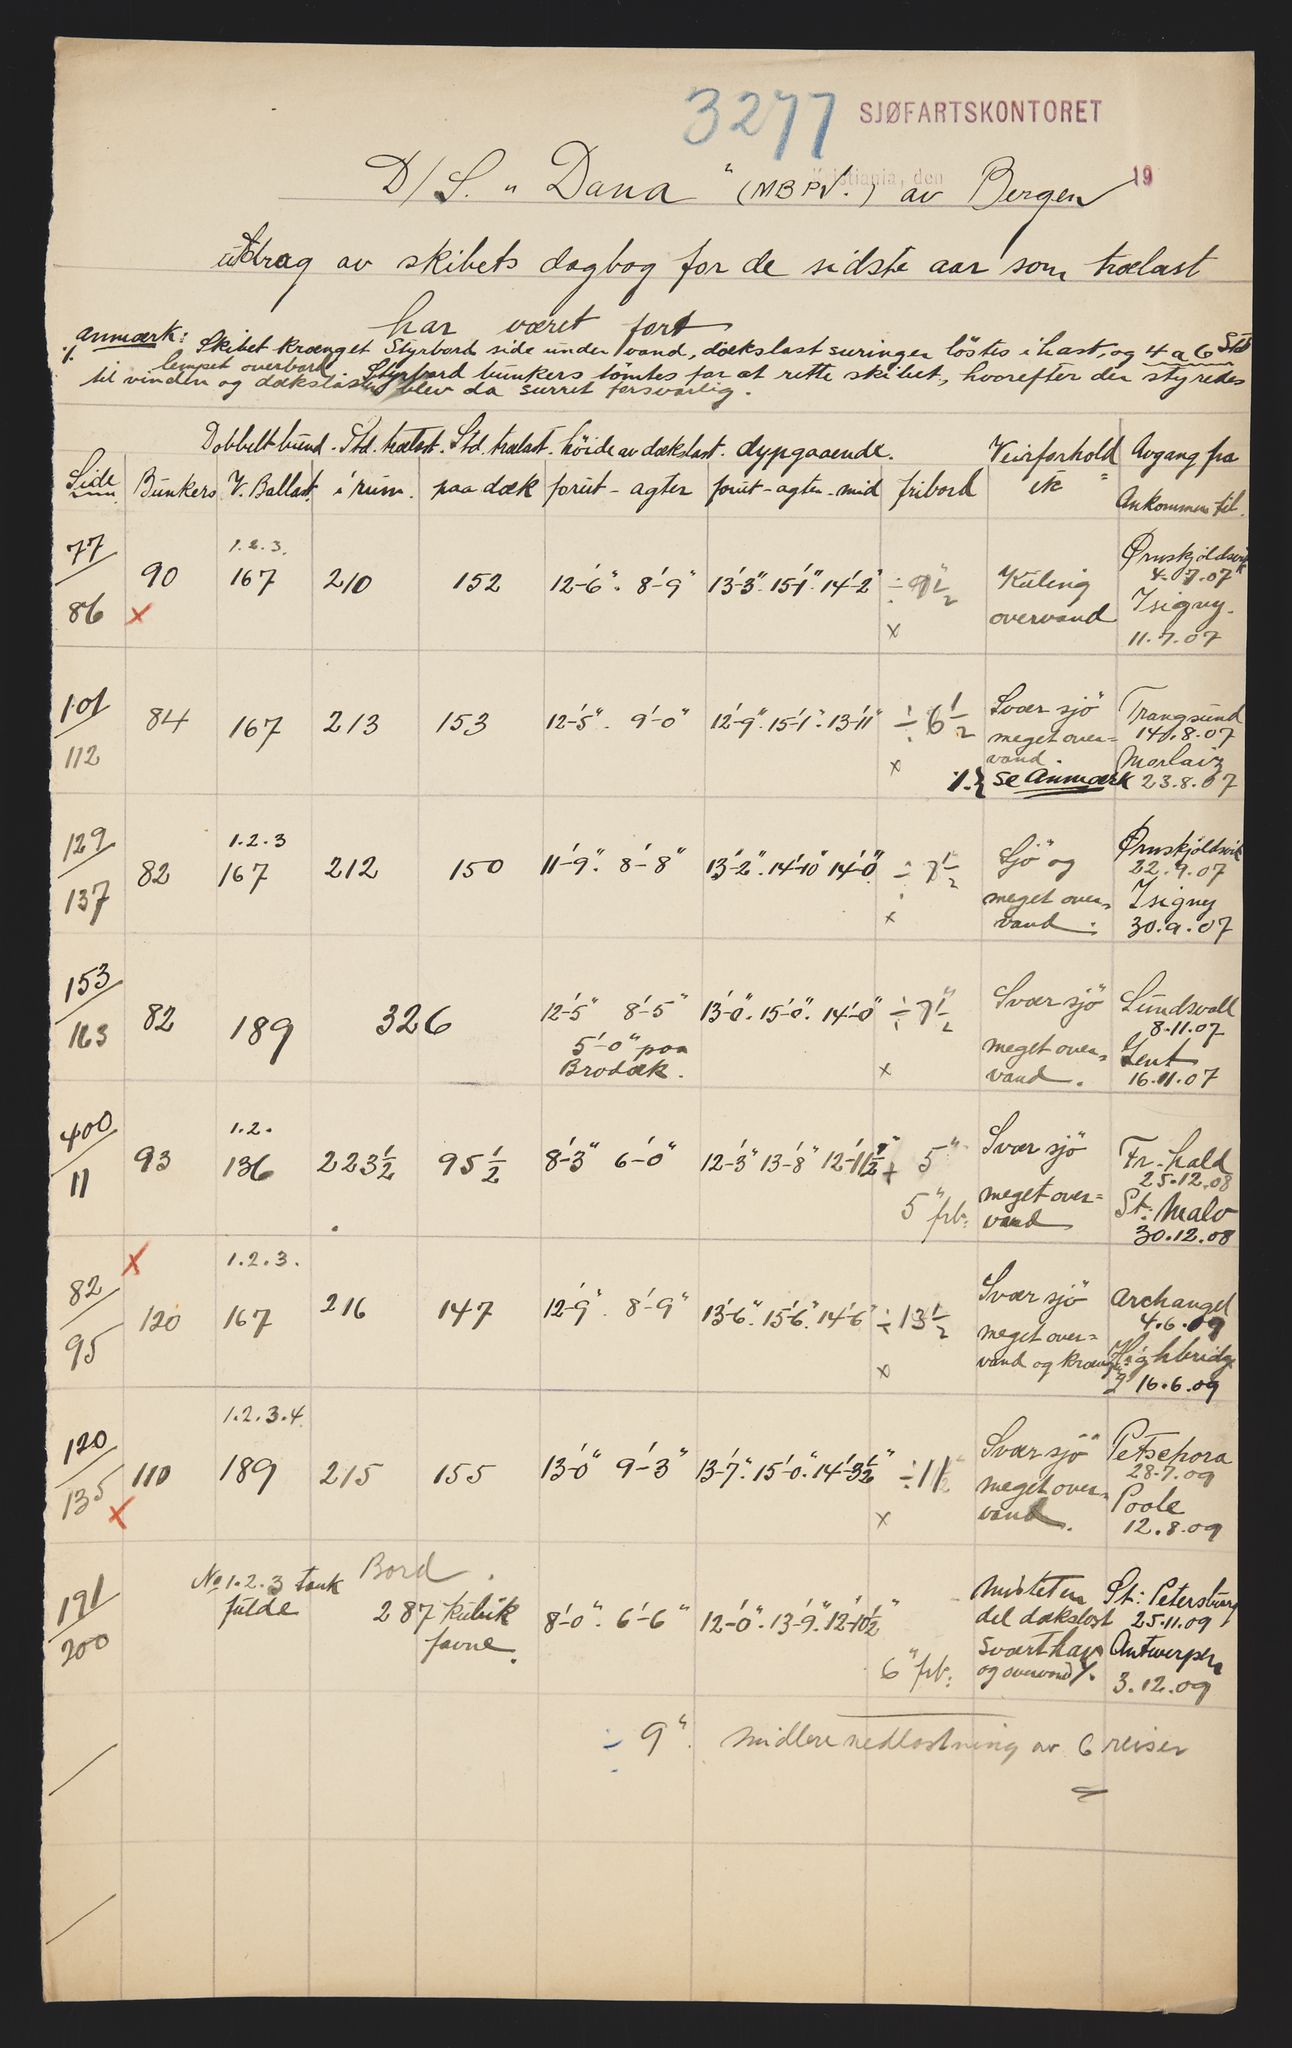 3277 SJØFARTSKONTORET
Kristiania, den 19
D/S. „Dana" (MBPV.) av Bergen
utdrag av skibets dagbog for de sidste aar som trælast
har været ført
Anmærk: Skibet krænget Styrbord side under vand, dækslast suringer löstes i hast, og 4 a 6 Std
%. lempet overbord. Styrbord bunkers tömtes for at rette skibet, hvorefter der styredes
til vinden og dækslasten blev da surret forsvarlig.
Dobbeltbund. Std. trælast. Std. trælast. höide av dækslast. dypgaaende. Veirforhold Avgang fra
Side Bunkers V. Ballast. i rum. paa dæk forut - agter forut - agter - mid fribord etc Ankommen til.
77/86 90 x 1.2.3. 167 210 152 12'-6". 8'-9" 13'-3". 15'-1". 14'-2" ÷ 9 1/2" x Kuling Ørnskjoldsvik
overvand 4.7.07
Isigny.
11.7.07
101/112 84 167 213 153 12'-5". 9'-0" 12'-9". 15'-1". 13'-11" ÷ 6 1/2 x Svær sjö Trangsund
meget over= 14.8.07
vand. Morlaix
%.} se Anmærk 23.8.07
129/137 82 1.2.3 167 212 150 11'-9". 8'-8" 13'-2". 14'-10" 14'-0". ÷ 7 1/2 x Sjö og Ørnskjöldsvik
22.9.07
meget over= Isigny
vand. 30.9.07
153/163 82 189 326 12'-5" 8'-5" 13'-0". 15'-0". 14'-0" ÷ 7 1/2" x Svær sjö Sundsvall
5'-0" paa 8.11.07
Brodæk. meget over= Gent
vand. 16.11.07
400/11 93 1.2. 136 223 1/2 95 1/2 8'-3" 6'-0" 12'-3" 13'-8" 12'-11 1/2" + 5" Svær sjö Fr.hald
25.12.08
5" frb: meget over= St: Malo
vand 30.12.08
82/95 x 120 1.2.3. 167 216 147 12'-9". 8'-9" 13'-6". 15'-6". 14'-6" ÷ 13 1/2 x Svær sjö Archangel
meget over= 4.6.09
vand og krænget Highbridge
16.6.09
120/135 x 110 1.2.3.4. 189 215 155 13'-0" 9'-3" 13'-7". 15'-0". 14'-3 1/2" ÷ 11 1/2" x Svær sjö Petschora
28.7.09
meget over= Poole
vand. 12.8.09
191/200 No 1.2.3 tank Bord. Mistet en St: Petersburg
fulde 287 kubik 8'-0". 6'-6" 12'-0". 13'-9". 12'-10 1/2" del dækslast 25.11.09
favne. svært hav Antwerpen
6" frb: og overvand %. 3.12.09
÷ 9". midlere nedlastning av 6 reiser